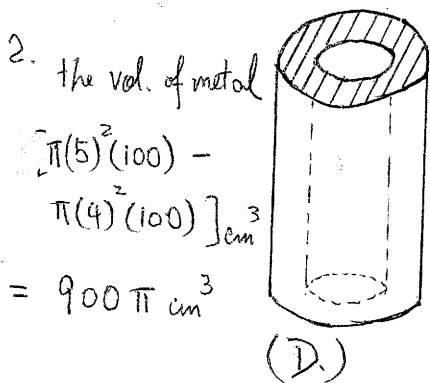 2.
the vol. of metal
[π(5)²(100) -
π(4)²(100)]cm³
= 900π cm³
(D.)